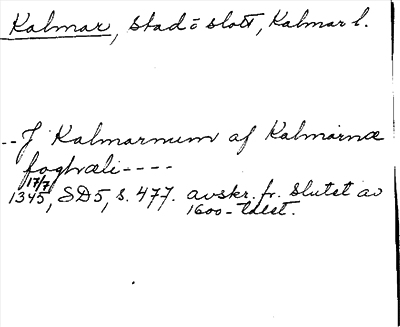 Kalmar, stad o slott, Kalmar l.
--J Kalmarnum af Kalmarnæ
foghræli----
17/7
1345, SD5, s. 477. avskr. fr. slutet av
1600-talet.